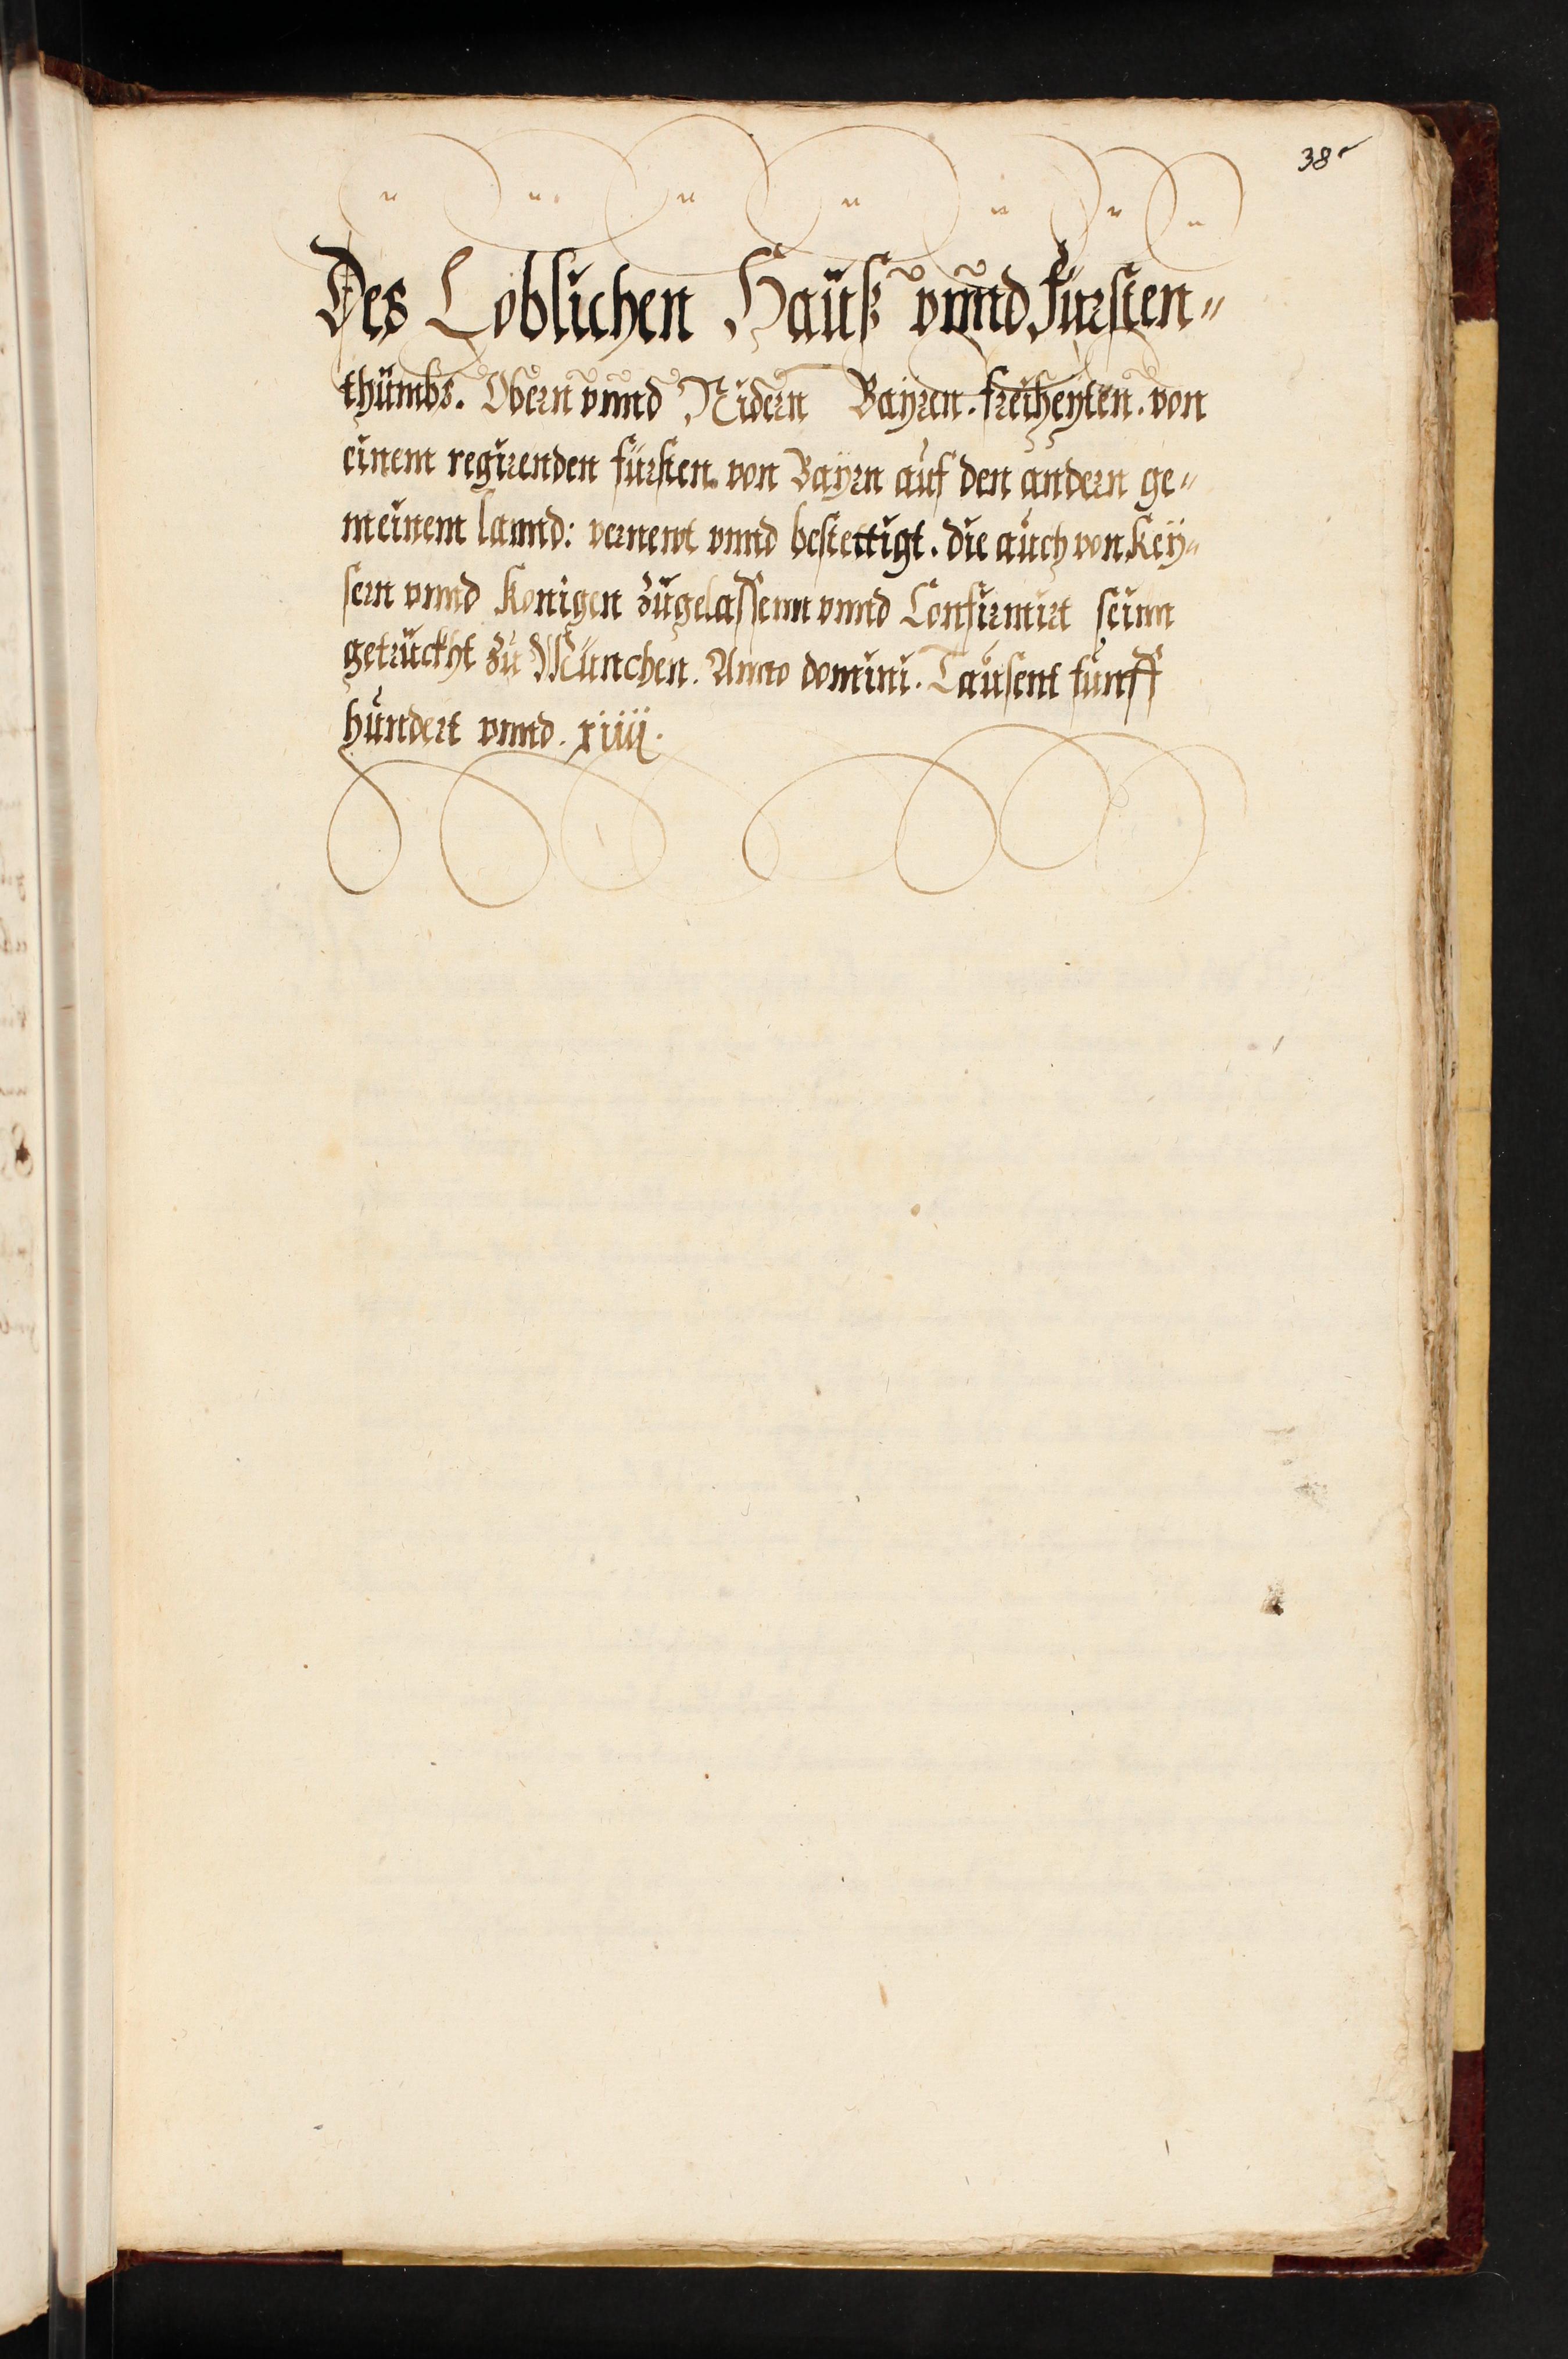 38r
Des Loblichen Hauß vnnd Fürsten=
thumbs. Obern vnnd Nidern Bayren. freiheyten. von
einem regirenden fürsten. von Bayrn auf den andern ge=
meinem lannd: vernewt vnnd bestettigt. die auch von Key=
sern vnnd Konigen zugelassenn vnnd Confirmirt seinn
getruckht zu München. Anno domini. Tausent funff
hundert vnnd. xiiij.